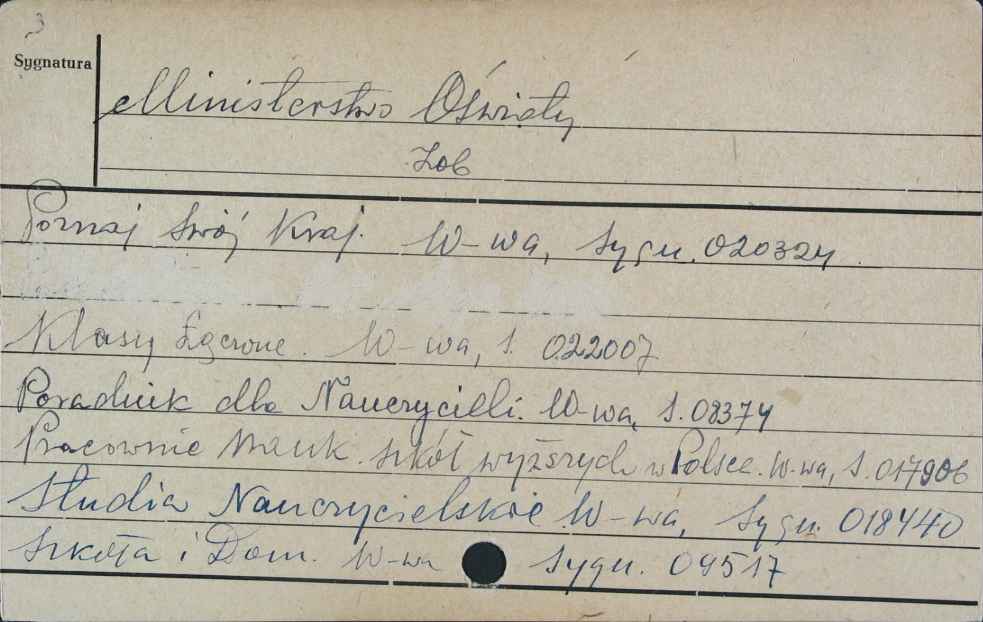 3
Sygnatura
Ministerstwo Oświaty
Zob
Poznaj Swój Kraj. W-wa, Sygn. 020324
Klasy Łączone. W-wa, S. 022007
Poradnik dla Nauczycieli. W-wa, S. 08374
Pracownie Nauk. szkół wyższych w Polsce. W-wa, S. 017906
Studia Nauczycielskie W-wa, Sygn. 018440
Szkoła i Dom. W-wa Sygn. 09517